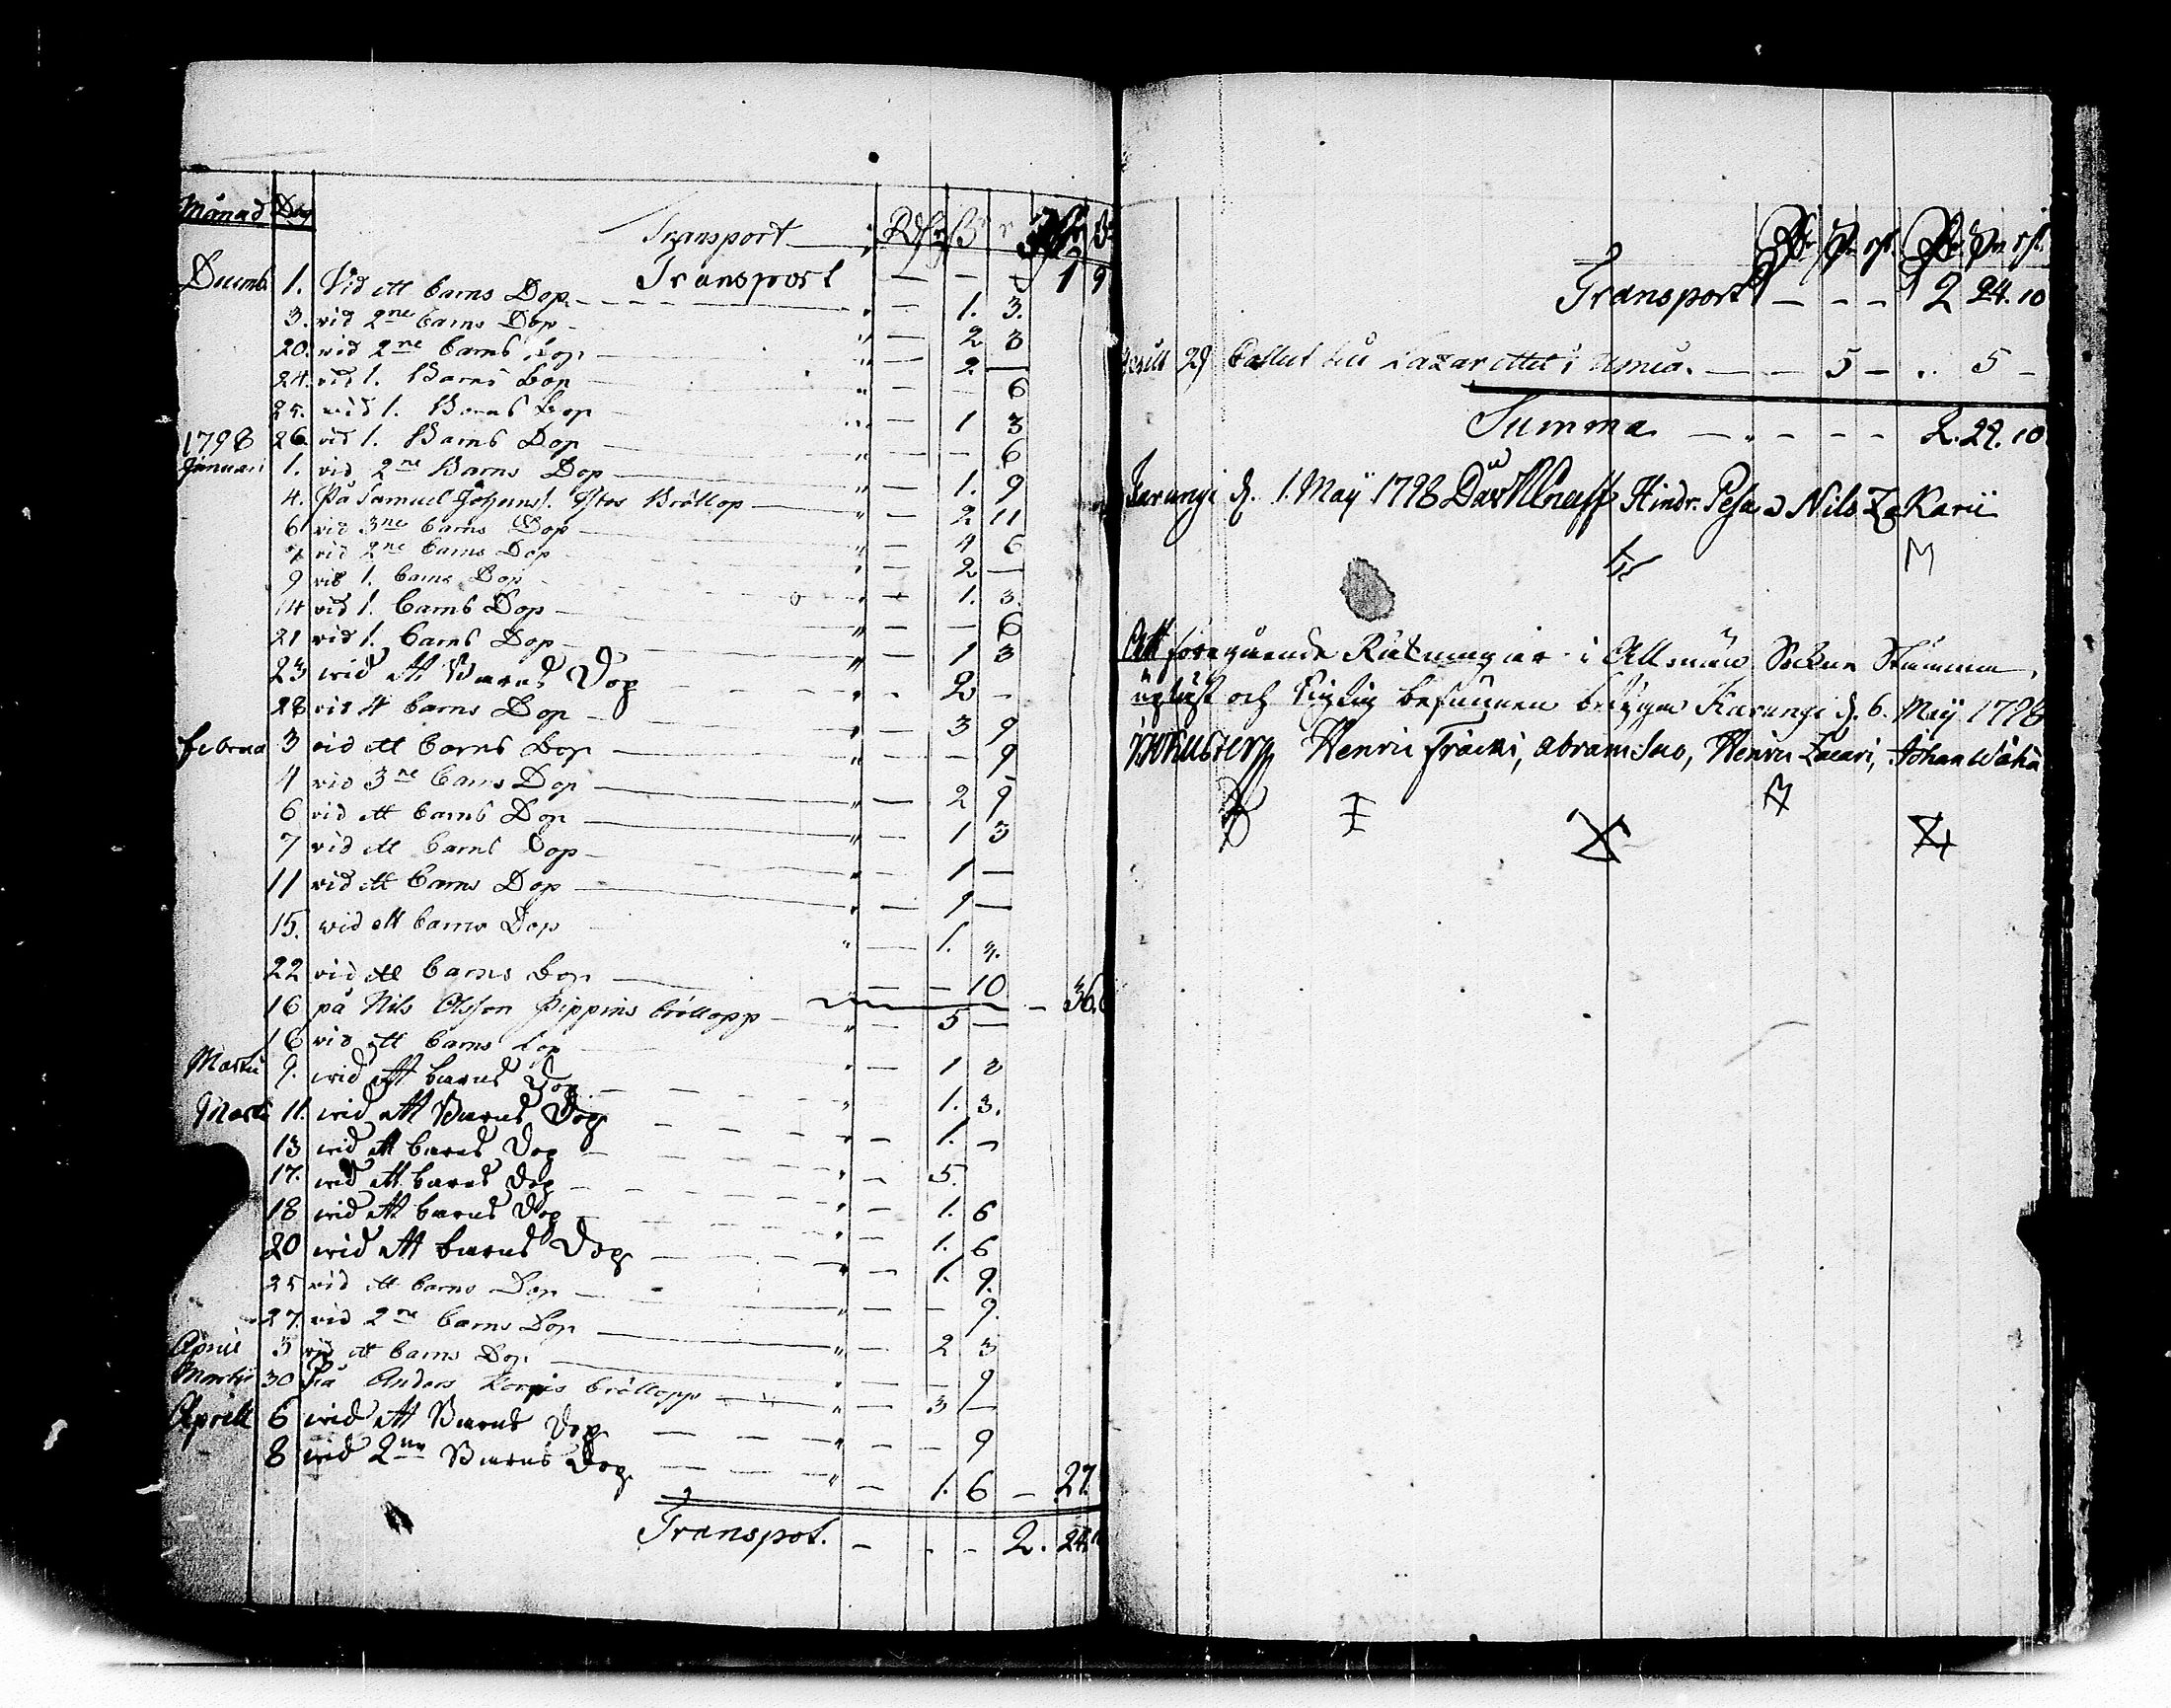 Månad Dag Transport Rdr ß r
Transport — — 1 9
Decemb. 1. Vid ett barns Dop — 1. 3.
3. vid 2ne barns Dop — 2 3
20. vid 2ne barns Dop — 2 —
24. vid 1. Barns Dop — — 6
25. vid 1. Barns Dop — 1 3
1798 26. vid 1. Barns Dop — — 6
Januari 1. vid 2ne Barns Dop — 1. 9
4. På Samuel Johanss. Bröllop — 2 11
6 vid 3ne barns Dop — 4 6
7 vid 2ne barns Dop — 2 —
9 vid 1. barns Dop — 1. 3.
14 vid 1. barns Dop — — 6
21 vid 1. barns Dop — 1 3
23 wid ett Barns Dop — 2 -
28 vid 4 barns Dop — 3 9
Februa 3 vid ett barns Dop — — 9
4 vid 3ne barns Dop — 2 9
6 vid ett barns Dop — 1 3
7 vid ett barns Dop — 1 —
11 vid ett barns Dop — 1 —
15. wid ett barns Dop — 1.
22 vid ett barns Dop — — 10 — 36.
16 på Nils Olsson Pippins bröllopp — 5 —
16 vid ett barns Dop — 1 3
Martii 9. wid ett barns Dop — 1. 3.
Marti 11. wid ett Barns Dop — 1. -
13 wid ett barns Dop — 5.
17. wid ett barns Dop — 1. 6
18 wid ett barns Dop — 1. 6
20 wid ett barns Dop — 1. 9.
25 vid ett barns Dop — — 9.
27. vid 2ne barns Dop — 2 3
April 3 vid ett barns Dop — — 9
Martii 30 På Anders bröllopp — 3 —
Aprill 6 wid ett Barns Dop — — 9
8 wid 2ne Barns Dop. — 1. 6 — 27.
Transpot. — - - 2. 24.
Transport — - - 2 24. 10
29 Collect till Lazarettet i Umeå. — — 5 — 5 —
Summa — - - - 2. 29. 10
Karungi d. 1. Maÿ 1798 Hindr. Pesa Nils
Att föregående Räkning är i Allmän Sockne Stämma,
upläst och befunnen betygar Karungi d. 6. Maÿ 1798
Henric Fräcki, Abram Suo, Henric Johan